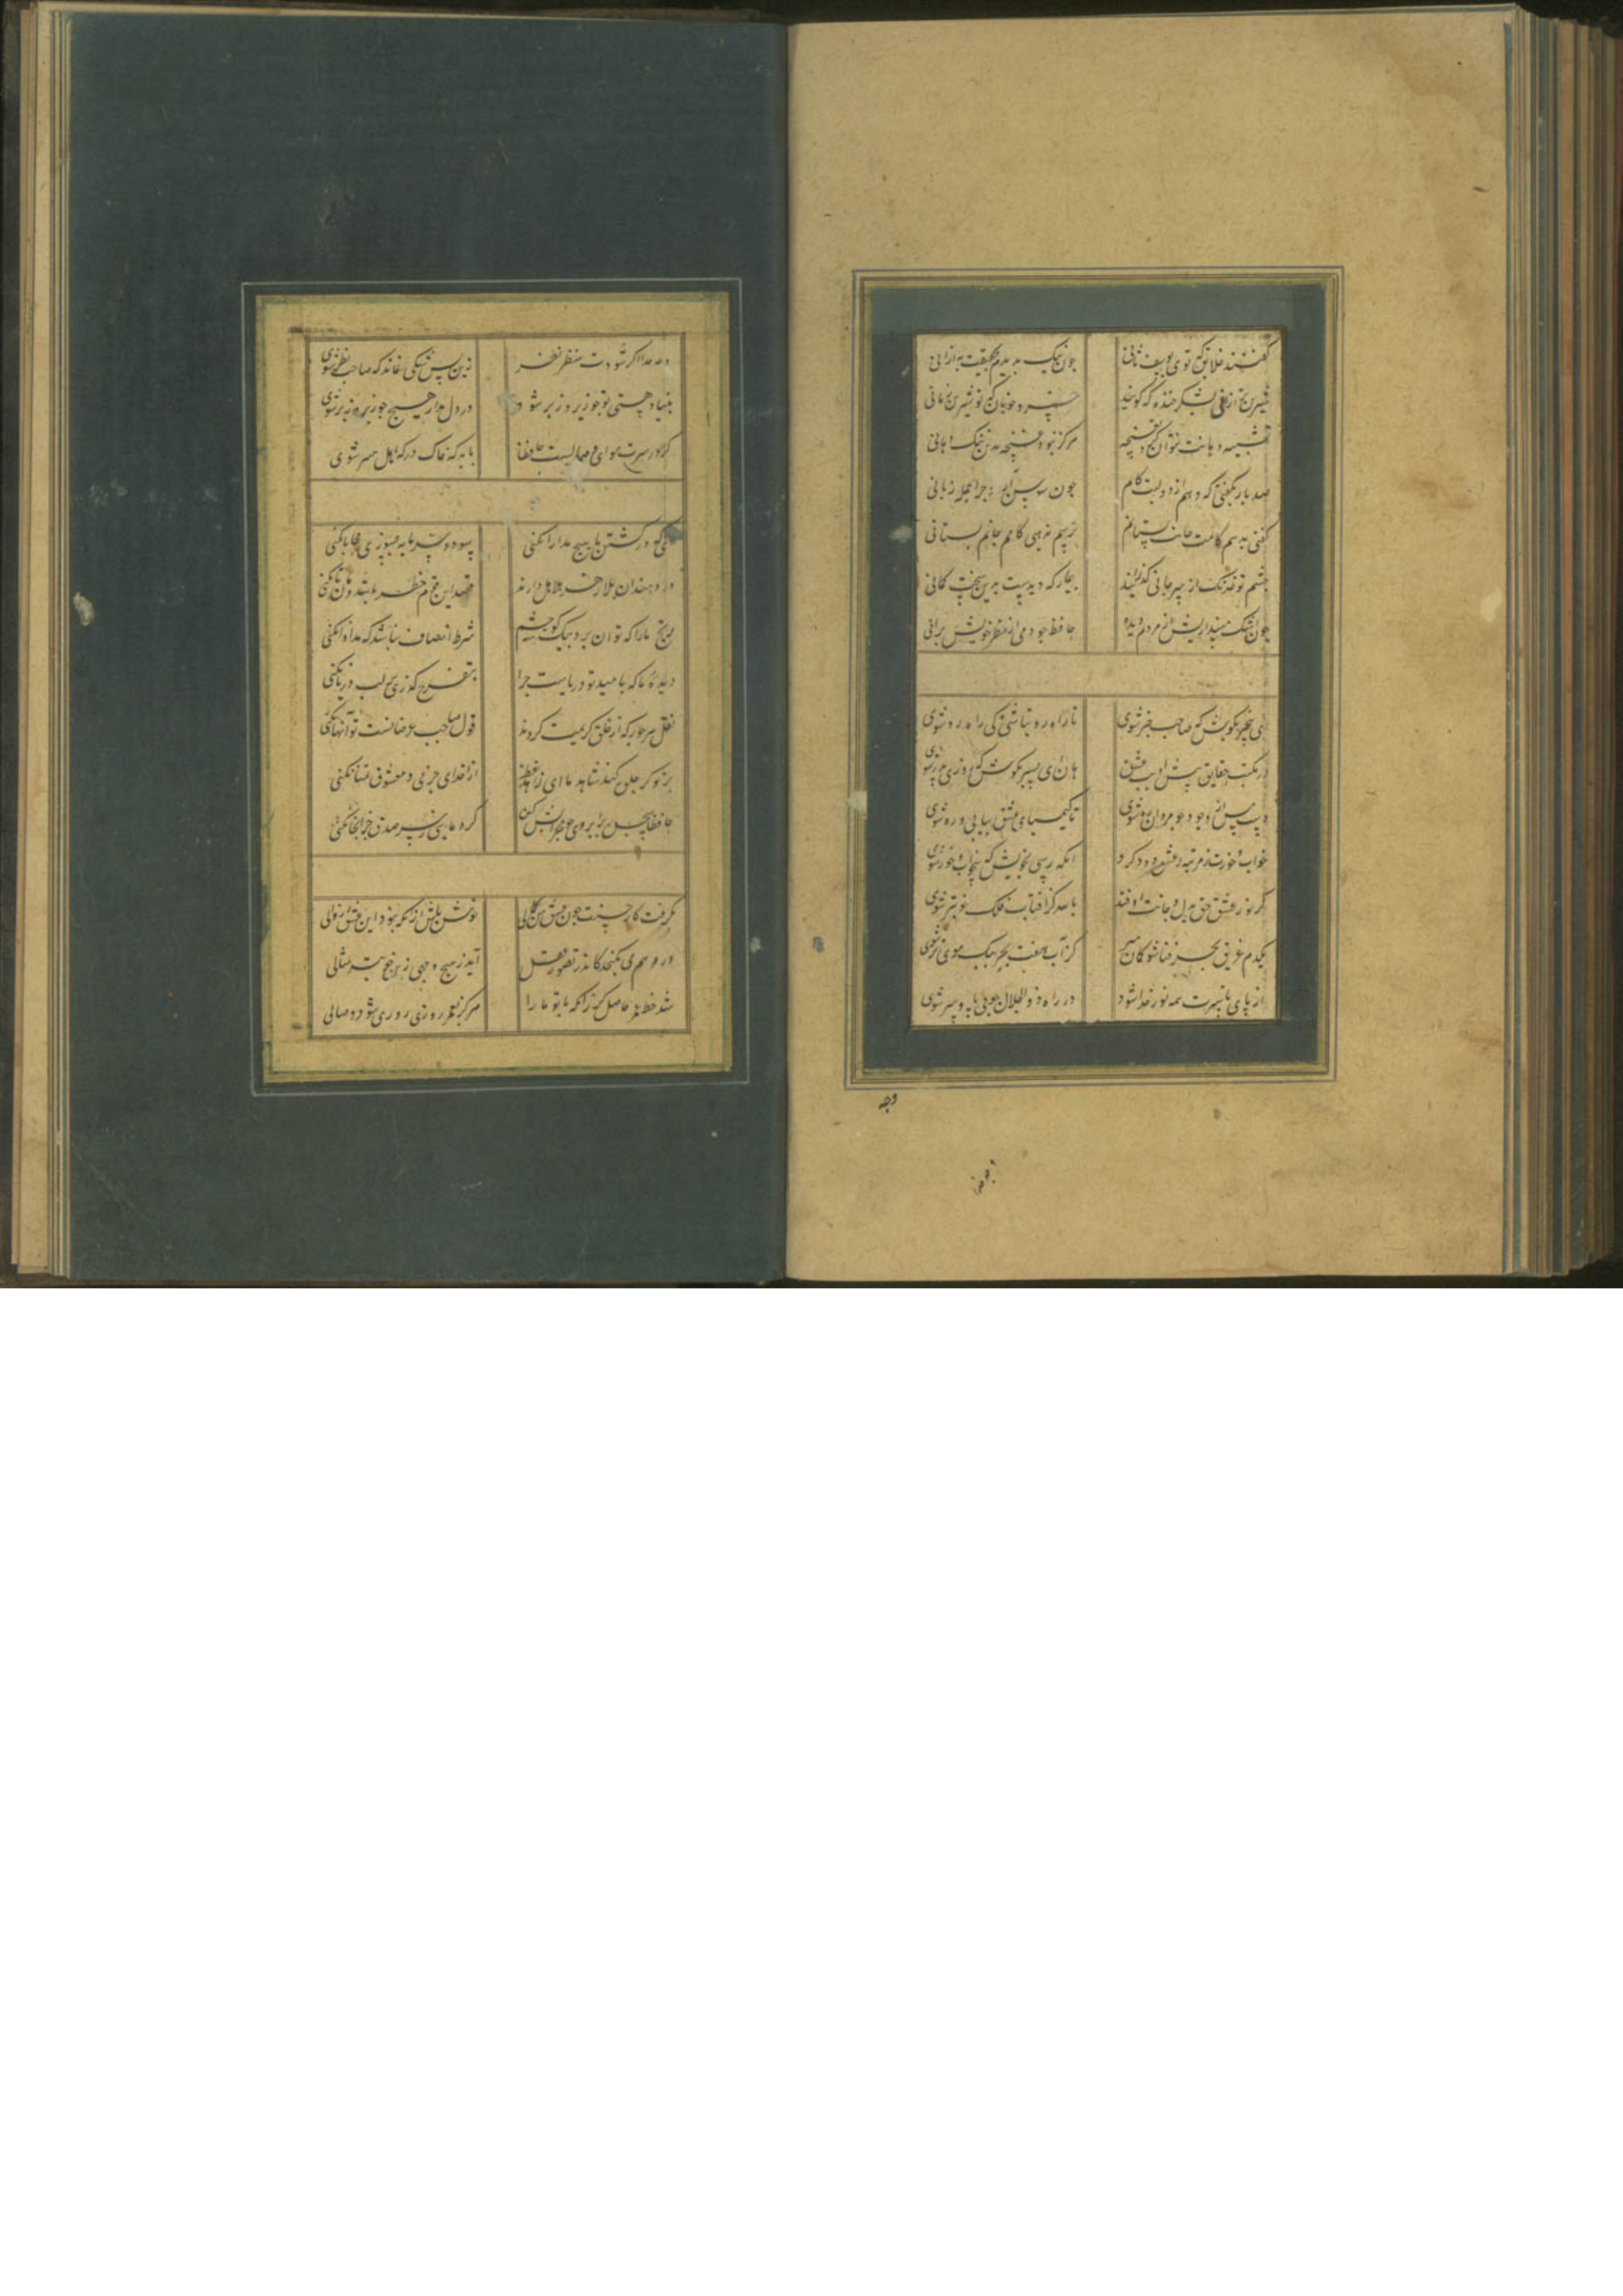 گفتند خلایق که توی یوسف ثانی جون نیک بدیدم بحقیقت به ازانی
شیرین تر ازانی بشکر خنده که گویند خسرو خوبان که تو شیرین زمانی
تشبیه دهانت نتوان کرد بغنچه هرکز نبود غنچه بدین تنک دهانی
صد بار بکفتی که دهم از دو لبت کام جون سوسن آزاد چرا جمله زبانی
کفتی بدهم کامت و جانت بستانم ترسم ندهی کامم و جانم بستانی
چشم تو خدنک از سپر جانی کذرانید بیمار که دیدست بدین سخت کمانی
جون اشک بیندازیش از مردم دیده حافظ جو دمی از نظر خویش برانی
ای بیخبر بکوش که صاحب خبر شوی تا راه رو نباشی کی راه رو شوی
در مکتب حقایق پیش ادیب عشق هان ای پسر بکوش که روزی پدر شوی
دست از مس وجود جو مردان ره بشوی تا کیمیای عشق بیابی و زر شوی
خواب و خورت ز مرتبه عشق دور کرد آنکه رسی بخویش که بیخواب و خور شوی
گر نور عشق حق بدل و جانت اوفتد بالله کز آفتاب فلک خوبتر شوی
یکدم غریق بحر فنا شو کمان مبر کز آب هفت بحر بیک موی تر شوی
از پای تا بسرت همه نور خدا شود در راه ذوالجلال جو بی پا و سر شوی
وجه
وجه خدا اکر شودت منظر نظر زین پس شکی نماند که صاحب نظر شوی
بنیاد هستی تو جو زیر و زبر شود در دل مدار هیچ جو زیر و زبر شوی
کر در سرت هوای وصالیست حافظا باید که خاک درکه اهل هنر شوی
ای که در کشتن ما هیچ مدارا نکنی سود و سرمایه بسوزی و محابا نکنی
دردمندان بلا زهر هلاهل دارند قصد این قوم خطر باشد هان تا نکنی
رنج ما را که توان برد بیک کوشه چشم شرط انصاف نباشد که مداوا نکنی
دیده ما که بامید تو دریاست چرا بتفرج کذری بر لب دریا نکنی
نقل هر جور که از خلق کریمت کردند قول صاحب غرضانست تو آنها نکنی
بر تو کر جلوه کند شاهد ما ای زاهد از خدای جز می و معشوق تمنا نکنی
حافظا سجده بابروی جو محرابش کن که دعایی ز سر صدق جز آنجا نکنی
بکرفت کار حسنت جون عشق من کمالی خوش باش زانکه نبود این عشق را زوالی
در وهم می نکنجد کاندر تصور عقل آید ز هیچ وجهی زین خوبتر مثالی
شد حظ عمر حاصل کر زانکه با تو ما را هرکز بعمر روزی روزی شود وصالی